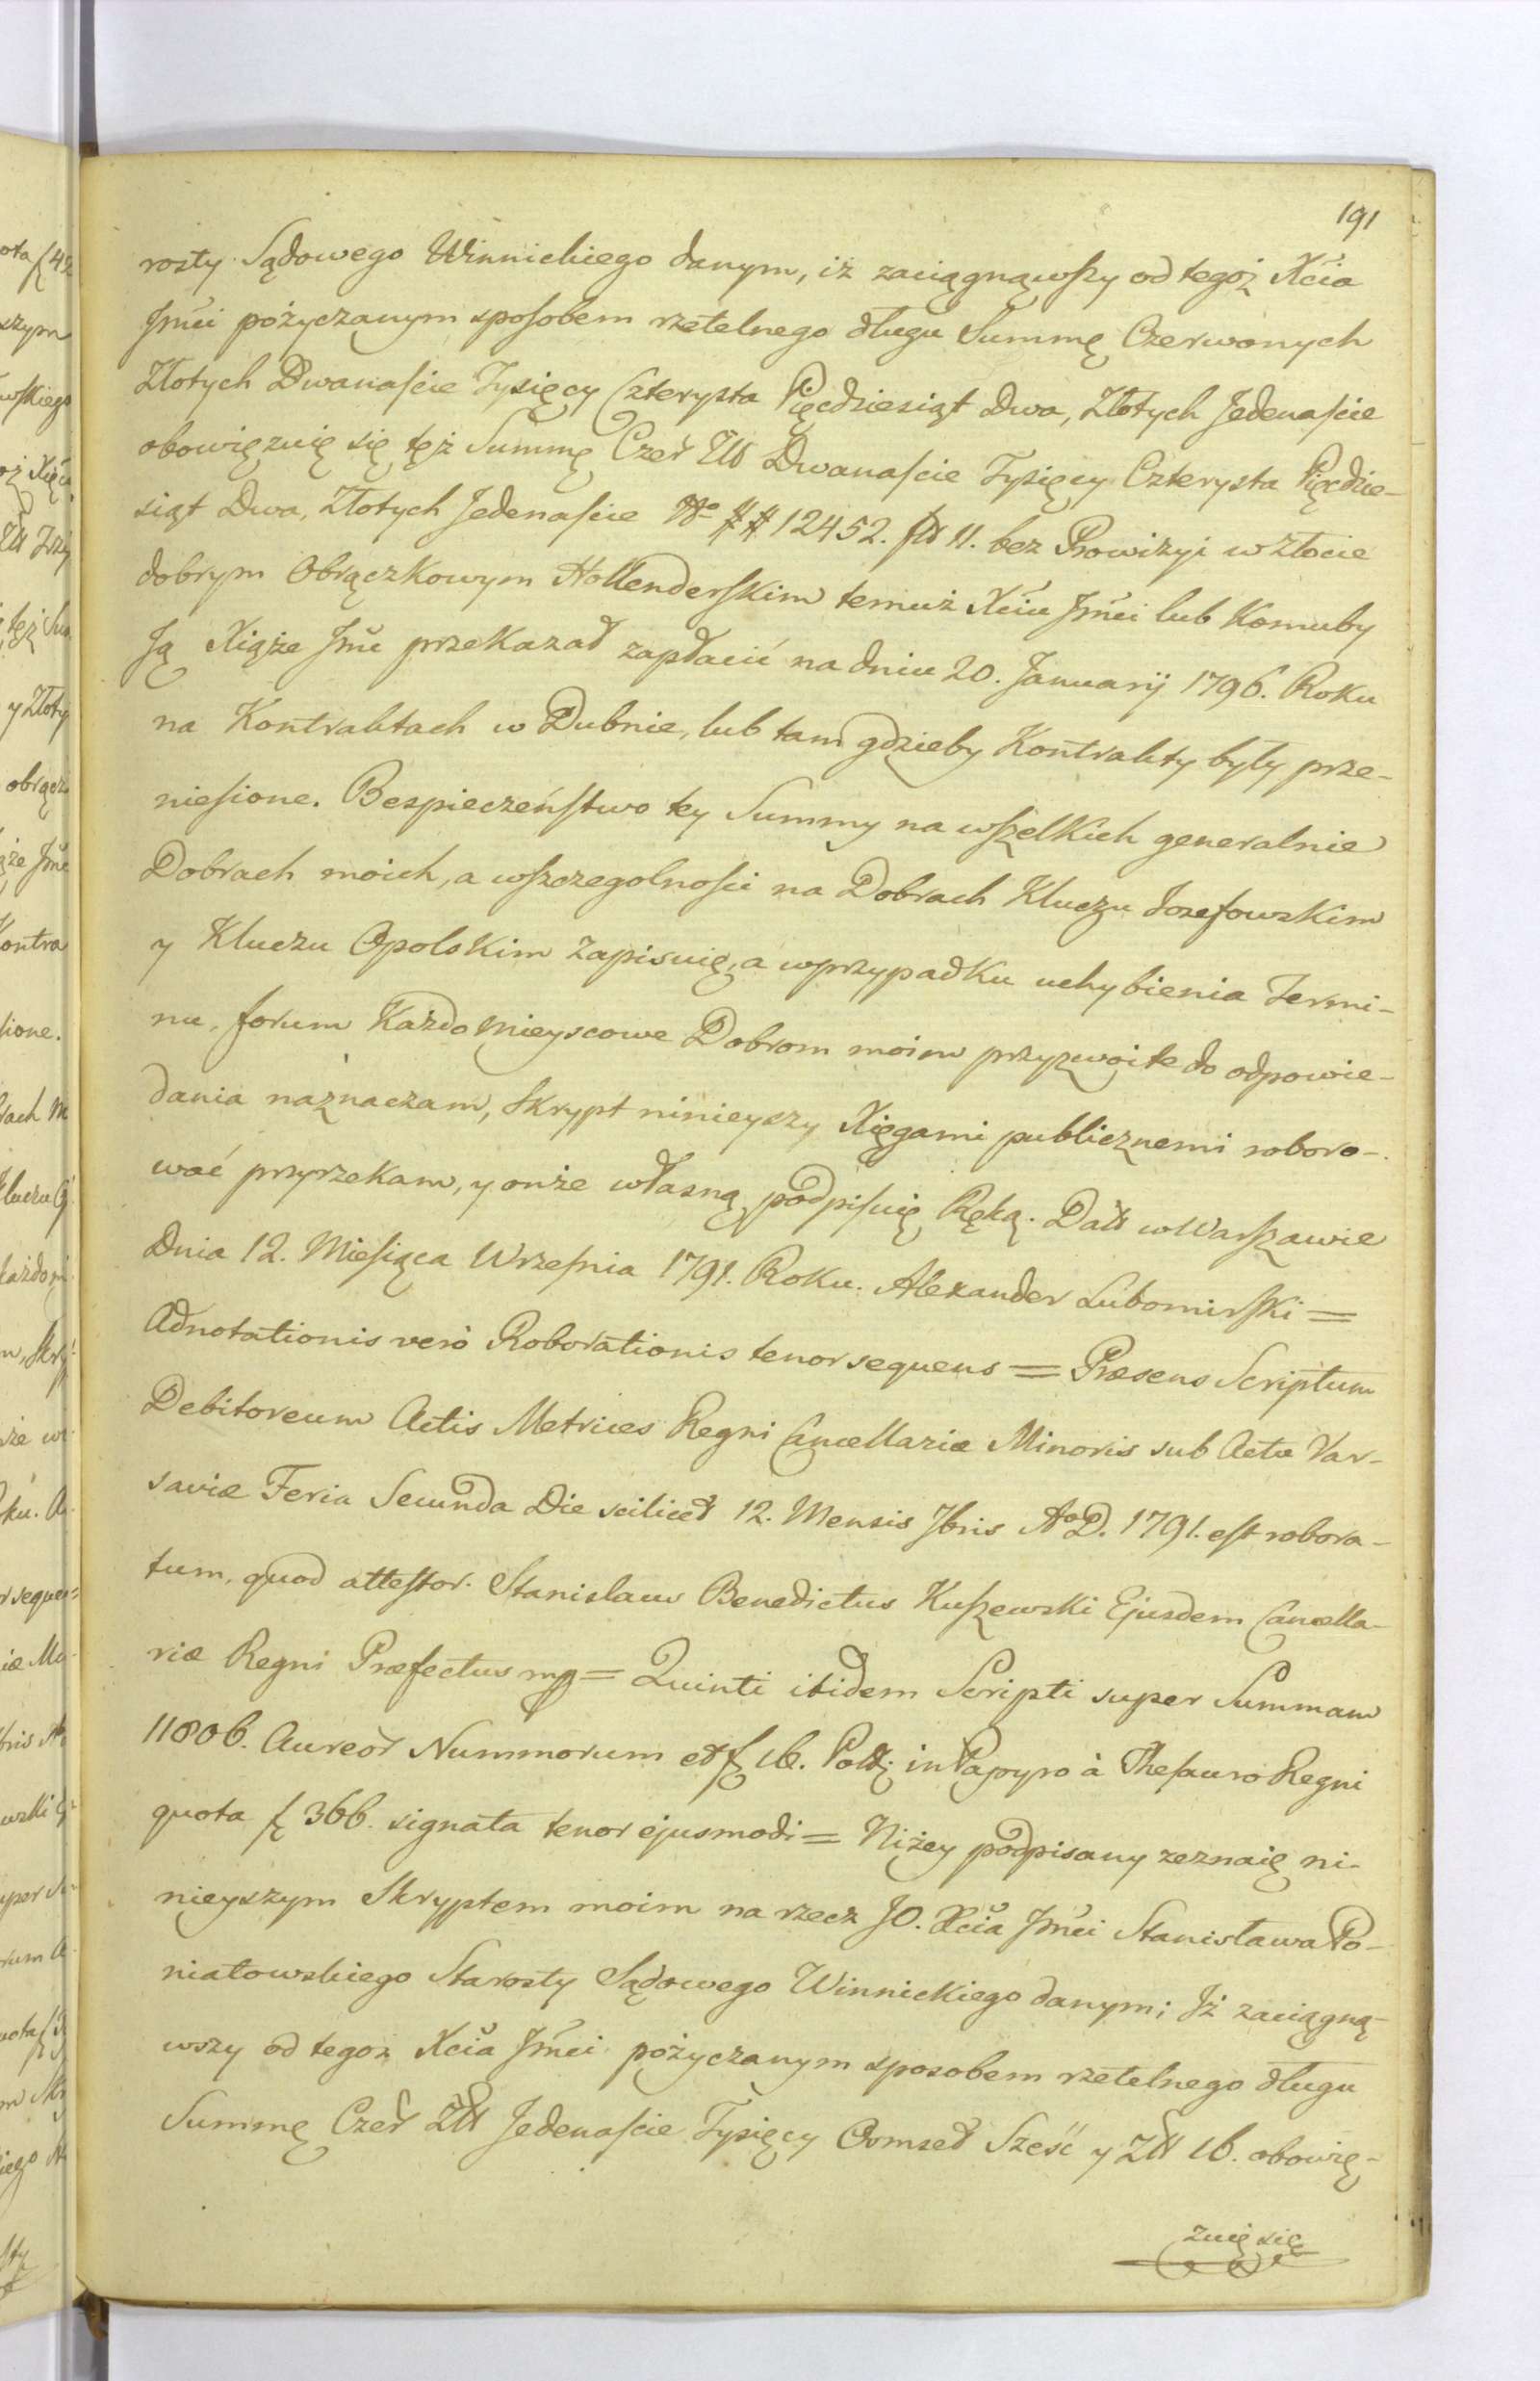 191
rosty Sądowego Winnickiego danym, iż zaciągnąwszy od tegoż Xcia
Jmci pożyczanym sposobem rzetelnego długu Summę Czerwonych
Złotych Dwanaście Tysięcy Czterysta Pięcdziesiąt Dwa, Złotych Jedenaście
obowięzuię się tęż Summę Czer Złł Dwanaście Tysięcy Czterysta Pięcdzie-
siąt Dwa, Złotych Jedenaście No ## 12452. fłł 11. bez Prowizyi w złocie
dobrym Obrączkowym Hollenderskim temuż Xciu Jmci lub Komuby
Ją Xiąże Jmć przekazał zapłacić na dniu 20. Januarij 1796. Roku
na Kontraktach w Dubnie, lub tam gdzieby Kontrakty były prze-
niesione. Bespieczeństwo tey Summy na wszelkich generalnie
Dobrach moich, a wszczegolności na Dobrach Kluczu Jozefowskim
y Kluczu Opolskim zapisuię, a wprzypadku uchybienia Termi-
nu, forum Każdo Mieyscowe Dobrom moim przyzwoite do odpowie-
dania naznaczam, skrypt ninieyszy Xięgami publicznemi roboro-
wać przyrzekam, y onże własną podpisuię Ręką. Dałł w Warszawie
Dnia 12. Miesiąca Września 1791. Roku. Alexander Lubomirski =
Adnotationis verò Roborationis tenor sequens = Præsens Scriptum
Debitoreum Actis Metrices Regni Cancellariæ Minoris sub Actu Var-
saviæ Feria Secunda Die scilicet 12. Mensis 7bris AoD. 1791. est robora-
tum, quod attestor. Stanislaus Benedictus Kuszewski Ejusdem Cancella-
riæ Regni Præfectus mp = Quinti itidem Scripti super Summam
11806. Aureor Nummorum et f 16. Poll: in Papyro à Thesauro Regni
quota f 366. signata tenor ejusmodi = Niżey podpisany zeznaię ni-
nieyszym Skryptem moim na rzecz JO. Xcia Jmci Stanisława Po-
niatowskiego Starosty Sądowego Winnickiego danym; Iż zaciągną-
wszy od tegoż Xcia Jmci pożyczanym sposobem rzetelnego długu
Summę Czer Złł Jedenaście Tysięcy Osmset Sześć y Złł 16. obowię-
zuię się